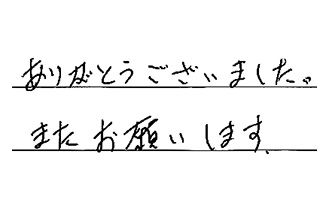 ありがとうございました。
またお願いします.